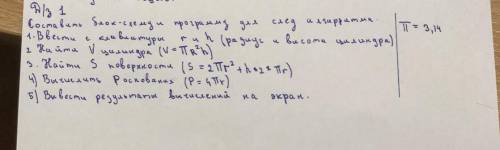 Д/з 1
Составить блок-схему и программу для след алгоритма.
1. Ввести с клавиатуры r и h (радиус и высота цилиндра)
2. Найти V цилиндра (V = πR²h)
3. Найти S поверхности (S = 2πr² + h*2*πr)
4) Вычислить Pоснования (P = 4πr)
5) Вывести результаты вычислений на экран.
π = 3,14